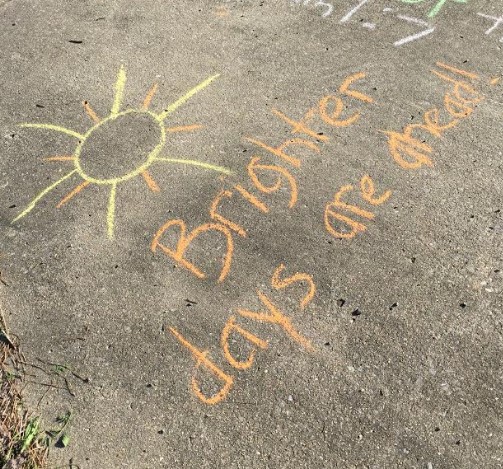 Brighter
days are ahead!